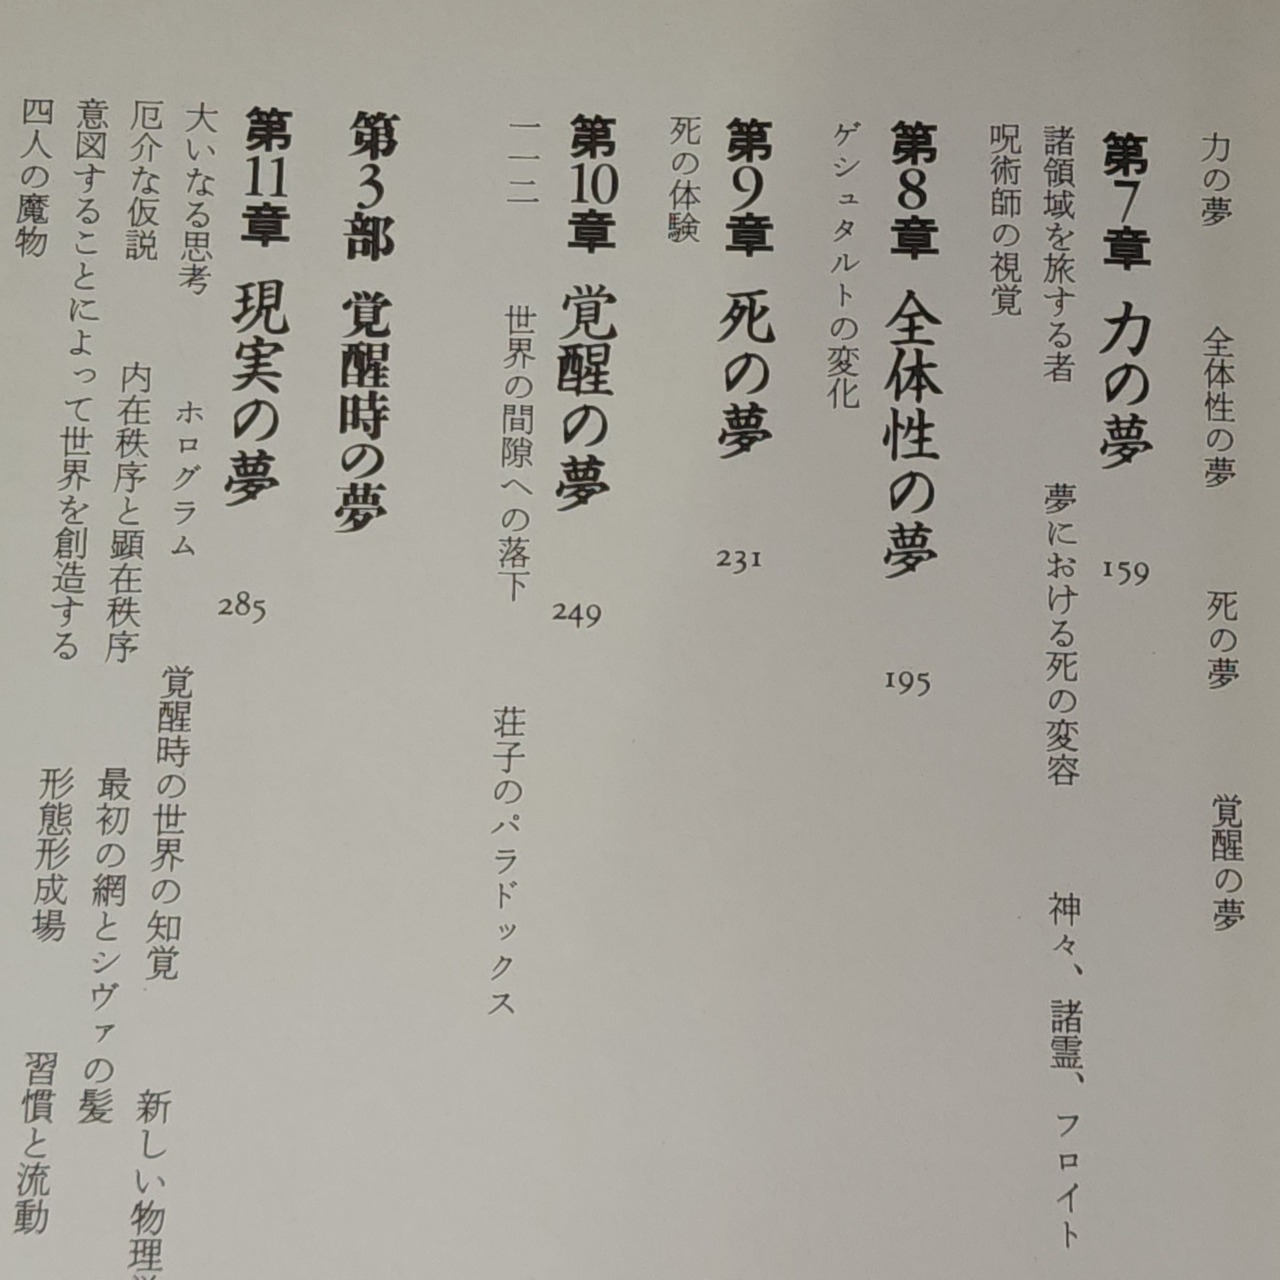 力の夢　全体性の夢　死の夢　覚醒の夢
第7章　力の夢　159
諸領域を旅する者　夢における死の変容　神々、諸霊、フロイト
呪術師の視覚
第8章　全体性の夢　195
ゲシュタルトの変化
第9章　死の夢　231
死の体験
第10章　覚醒の夢　249
一一二　世界の間隙への落下　荘子のパラドックス
第3部　覚醒時の夢
第11章　現実の夢　285
大いなる思考　ホログラム　覚醒時の世界の知覚　新しい物理
厄介な仮説　内在秩序と顕在秩序　最初の網とシヴァの髪
意図することによって世界を創造する　形態形成場　習慣と流動
四人の魔物